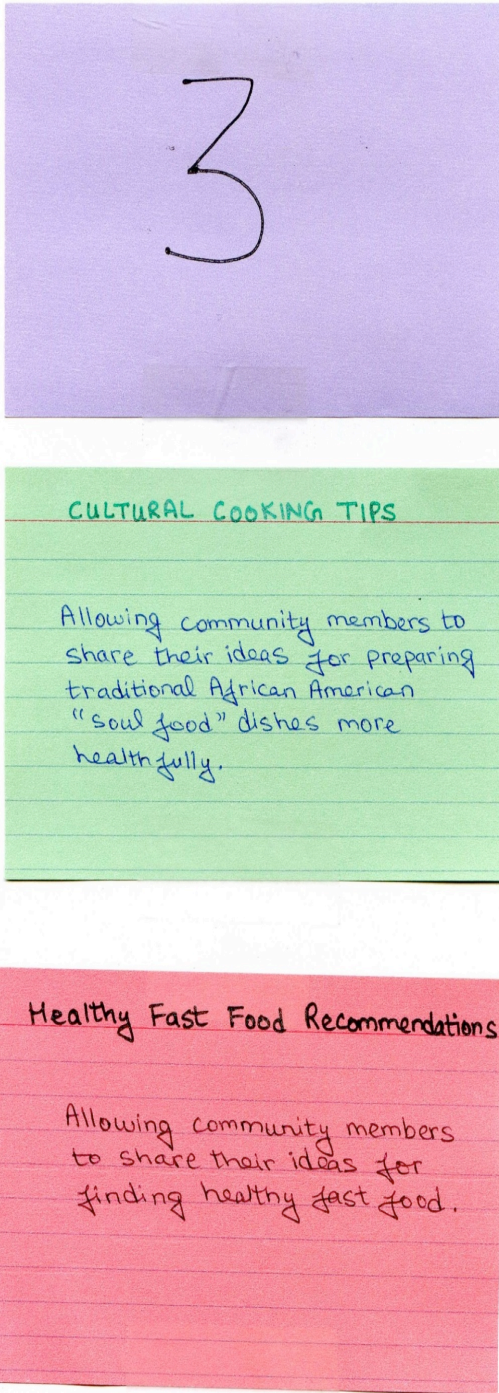 3
CULTURAL COOKING TIPS
Allowing community members to
share their ideas for preparing
traditional African American
"soul food" dishes more
healthfully.
Healthy Fast Food Recommendations
Allowing community members
to share their ideas for
finding healthy fast food.